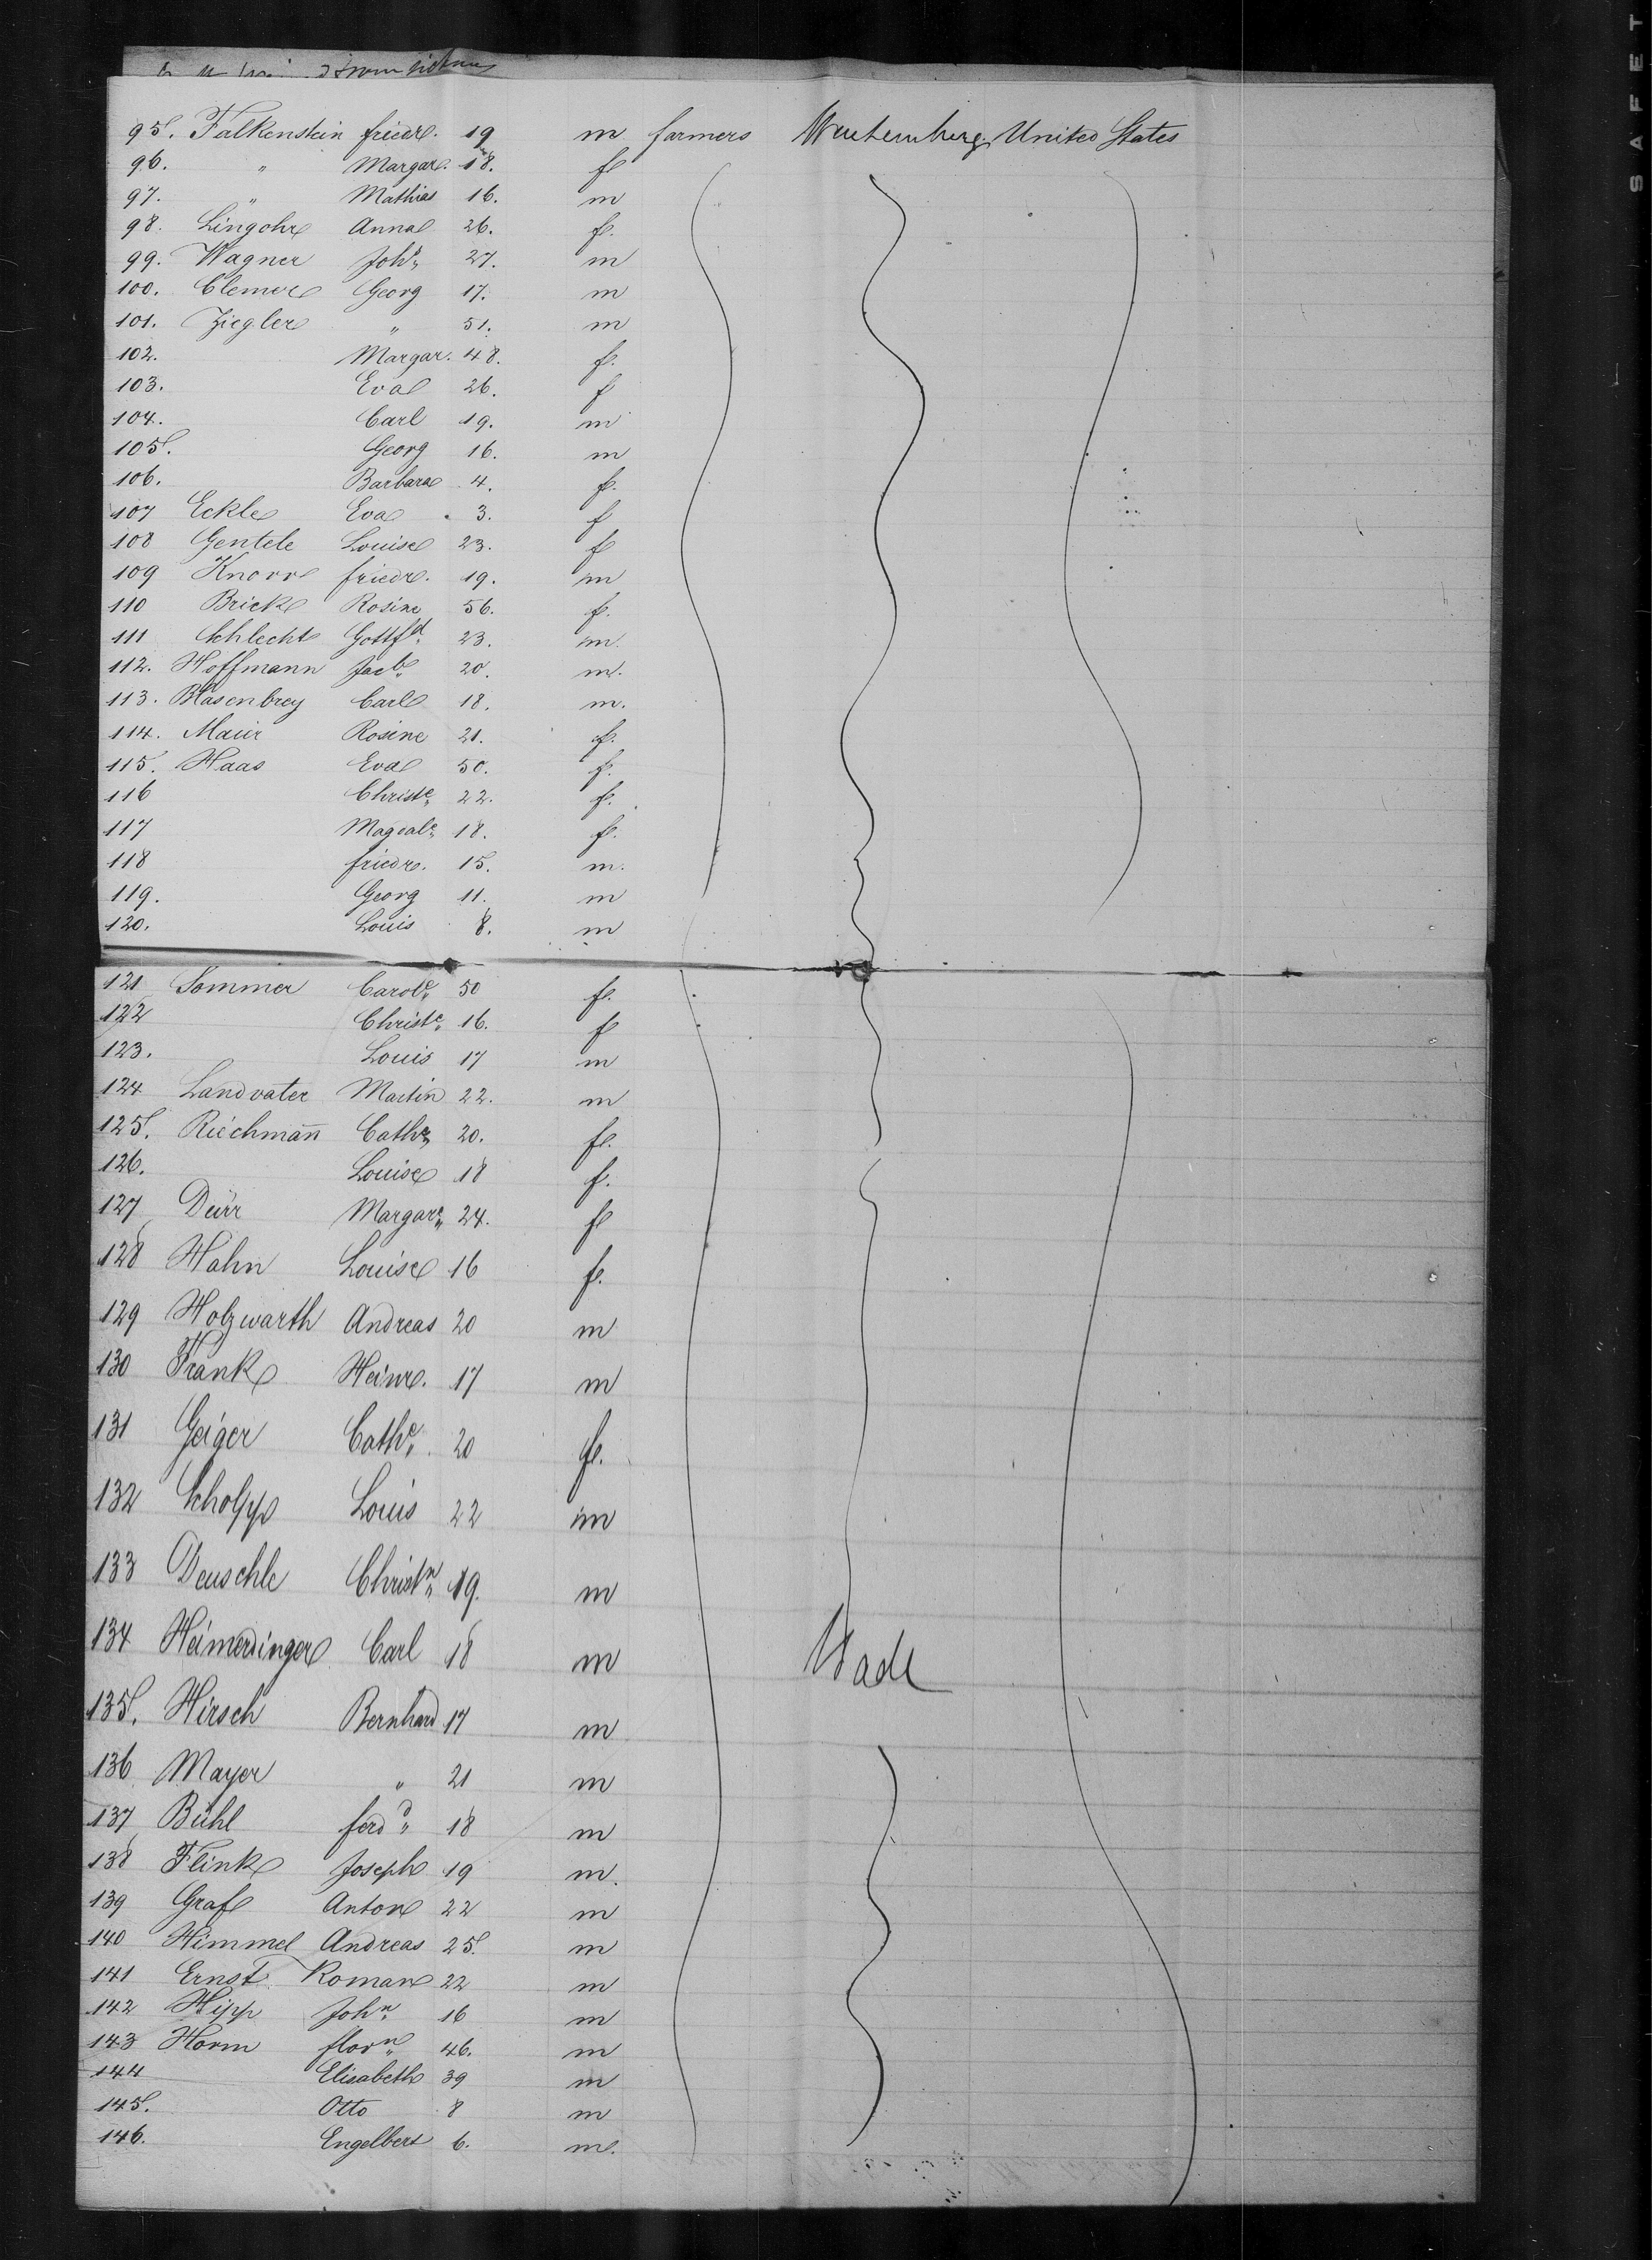 95. Falkenstein friedr. 19 m farmers Wurtemburg United States
96. " Margar. 18. f
97. " Mathias 16. m
98. Lingohr Anna 26. f.
99. Wagner Joh. 27. m
100. Clemer Georg 17. m
101. Ziegler " 51. m
102. Margar. 48. f.
103. Eva 26. f
104. Carl 19. m
105. Georg 16. m
106. Barbara 4. f.
107 Eckle Eva 3. f
108 Gentele Louise 23. f
109 Knorr friedr. 19. m
110 Brick Rosine 56. f.
111 Schlecht Gottfd. 23. m.
112. Hoffmann Jacb. 20. m.
113. Blasenbrey Carl 18. m.
114. Maier Rosine 21. f.
115. Haas Eva 50. f.
116 Christe. 22. f.
117 Magdale. 18. f.
118 friedr. 15. m.
119. Georg 11. m
120. Louis 8. m
121 Sommer Carole. 50 f.
122 Christe. 16. f
123. Louis 17 m
124 Landvater Martin 22. m
125. Riechmañ Cathe. 20. f.
126. Louise 18 f.
127 Dürr Margare. 24. f
128 Hahn Louise 16 f.
129 Holzwarth Andreas 20 m
130 Frank Heinr. 17 m
131 Geiger Cathe. 20 f.
132 Schopp Louis 22 m
133 Deuschle Christn. 19. m
134 Heimerdinger Carl 18 m Bade
135. Hirsch Bernhard 17 m
136 Mayer " 21 m
137 Bühl ferdd. 18 m
138 Flink Joseph 19 m.
139 Graf Anton 22 m
140 Himmel Andreas 25. m
141 Ernst Roman 22 m
142 Hipp John. 16 m
143 Horm florn. 46. m
144 Elisabeth 39 m
145. Otto 8 m
146. Engelbert 6. m.
SAFET